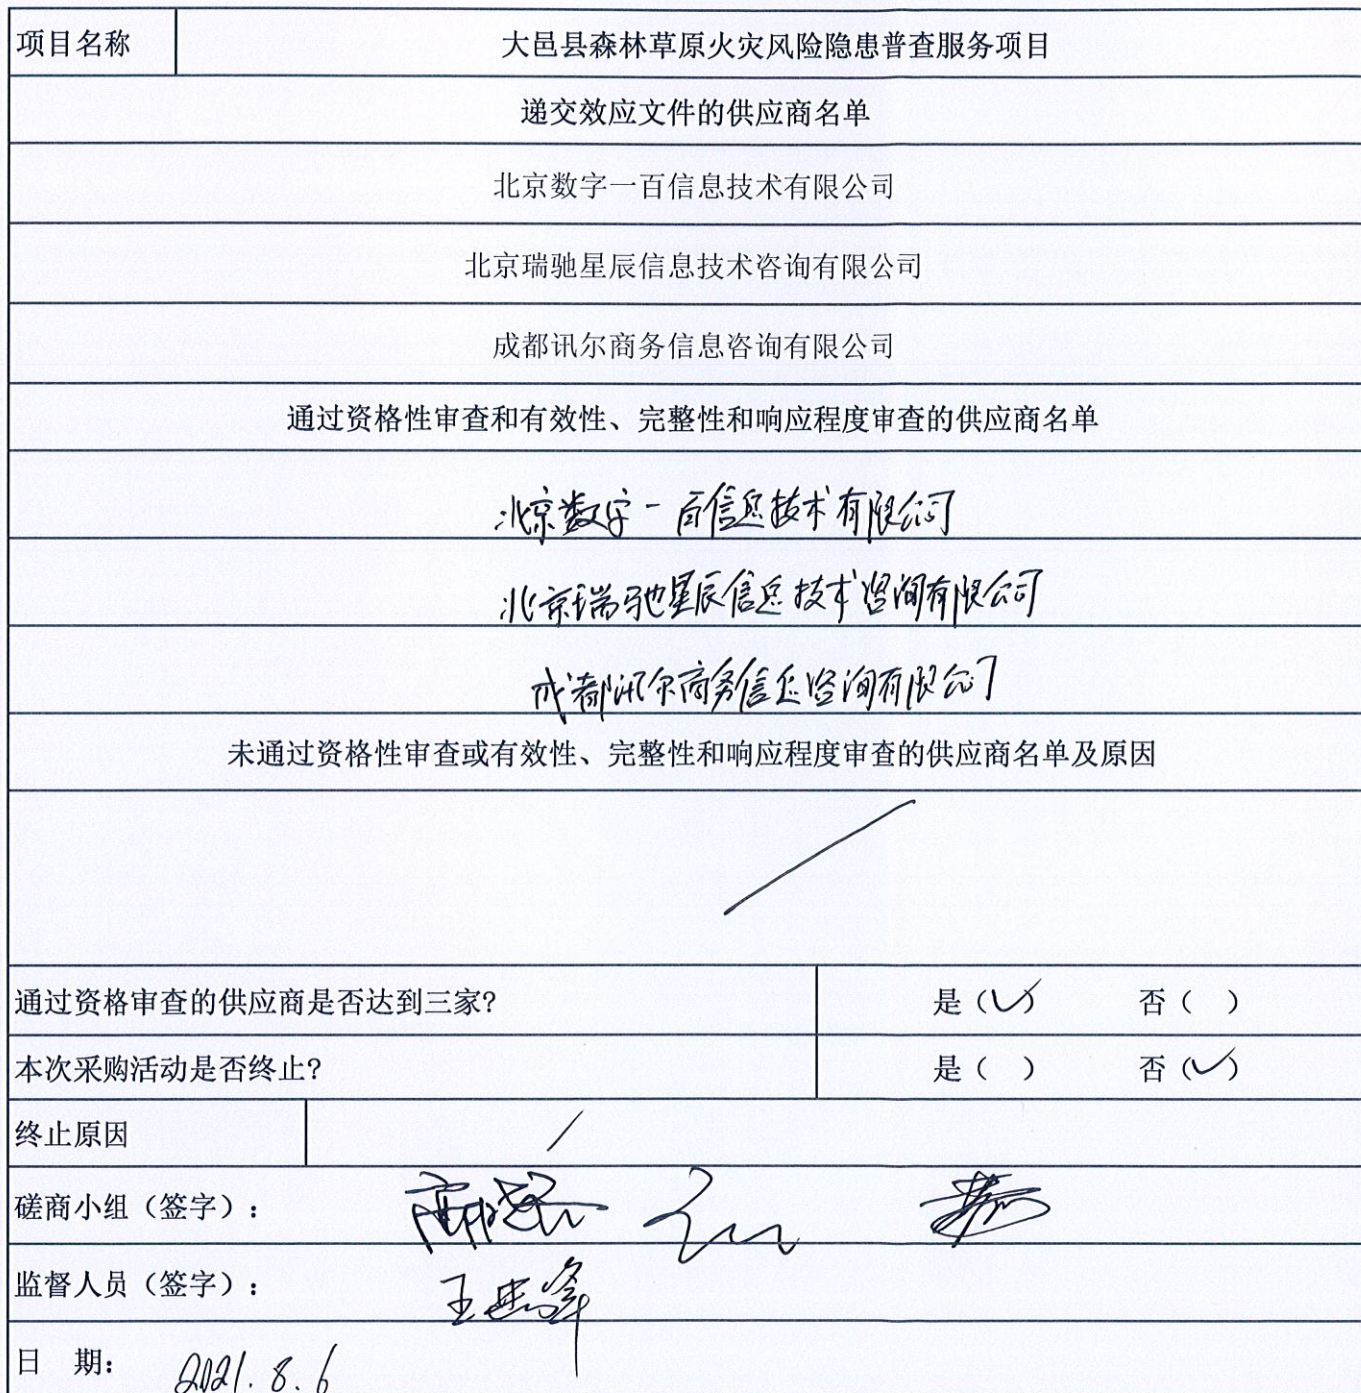 项目名称 大邑县森林草原火灾风险隐患普查服务项目
递交效应文件的供应商名单
北京数字一百信息技术有限公司
北京瑞驰星辰信息技术咨询有限公司
成都讯尔商务信息咨询有限公司
通过资格性审查和有效性、完整性和响应程度审查的供应商名单
北京数字一百信息技术有限公司
北京瑞驰星辰信息技术咨询有限公司
成都讯尔商务信息咨询有限公司
未通过资格性审查或有效性、完整性和响应程度审查的供应商名单及原因
/
通过资格审查的供应商是否达到三家? 是(✓) 否( )
本次采购活动是否终止? 是( ) 否(✓)
终止原因 /
磋商小组（签字）：
监督人员（签字）： 王
日 期： 2021.8.6